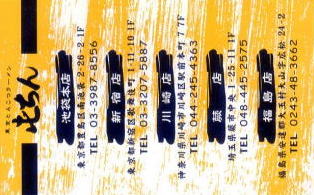 東京とんこつラーメン
屯ちん
池袋本店
東京都豊島区南池袋2-26-2 1F
TEL 03-3987-8556
新宿店
東京都新宿区歌舞伎町1-11-10 1F
TEL 03-3207-5887
川崎店
神奈川県川崎市川崎区駅前本町7 7F
TEL 044-245-4363
蕨店
埼玉県蕨市中央1-25-11 1F
TEL 048-445-2575
福島店
福島県安達郡大玉村大山字広松24-2
TEL 0243-48-3662